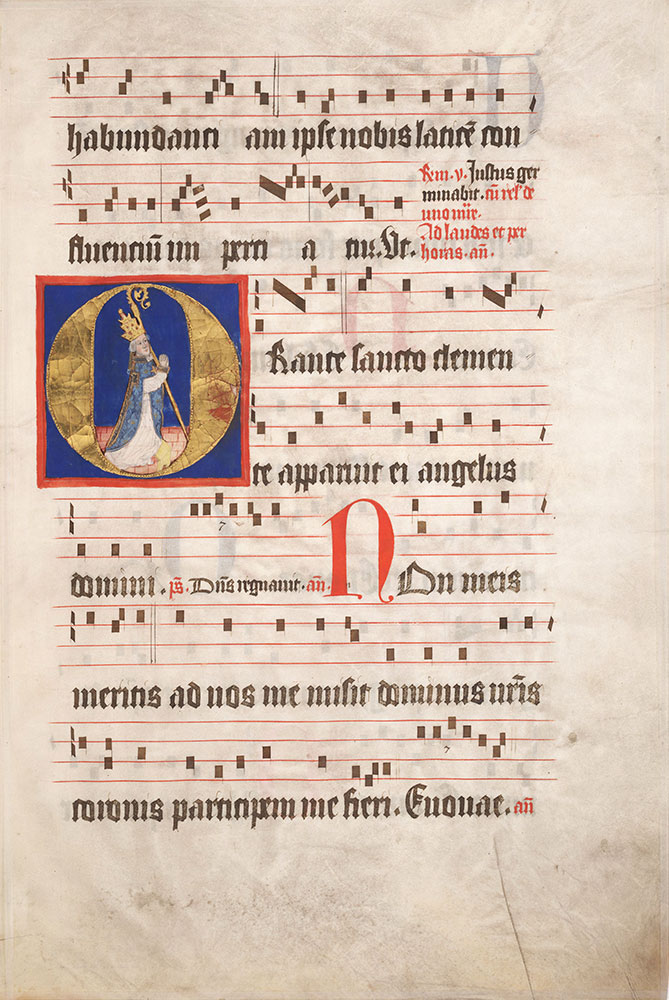 habundanci am ipse nobis laticē con
fluenciū im perti a tur. Vt.
Rem. v. Justus ger
minabit. cū rel' de
uno mr̄e.
Ad laudes et per
horas. an̄.
ORante sancto clemen
te apparuit ei angelus
domini. ps̄. Dn̄s regnauit. an̄. NOn meis
meritis ad uos me misit dominus ur̄is
coronis participem me fieri. Euouae. an̄